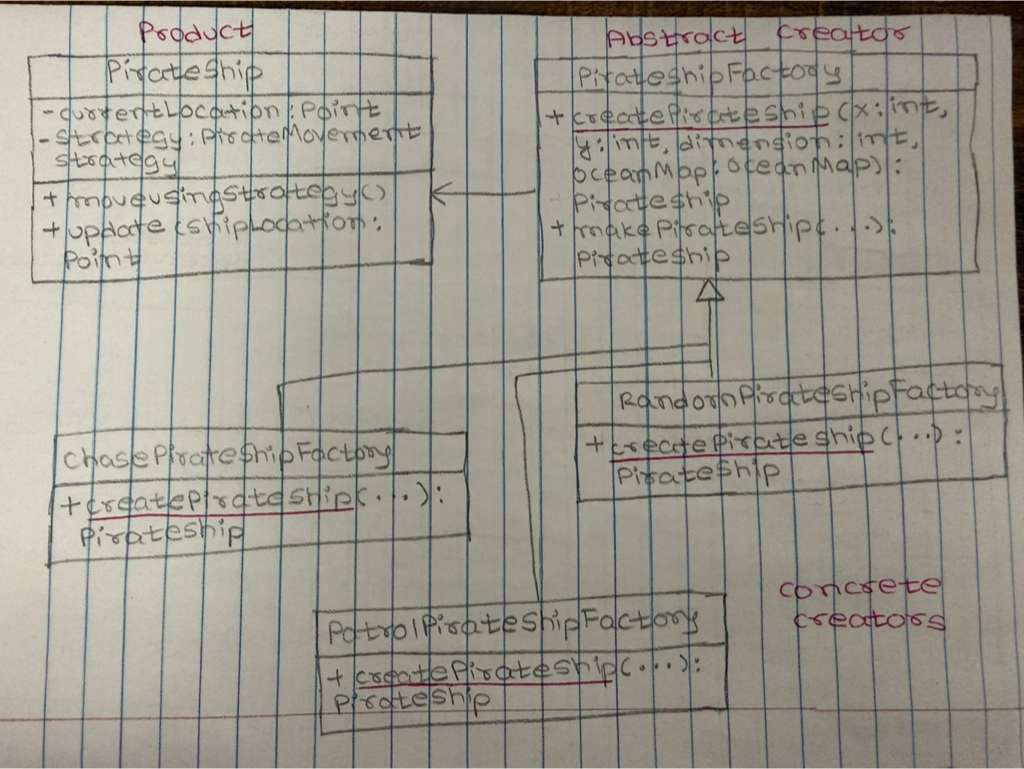 Product
PirateShip
-currentLocation:Point
-strategy:PirateMovement
strategy
+moveusingstrategy()
+update(shipLocation:
Point
Abstract Creator
PirateshipFactory
+createPirateship(x:int,
y:int, dimension:int,
oceanMap:OceanMap):
Pirateship
+makePirateship(...):
Pirateship
RandomPirateshipFactory
+createPirateship(...):
Pirateship
chasePirateshipFactory
+createPirateship(...):
Pirateship
concrete
creators
PatrolPirateshipFactory
+createPirateship(...):
Pirateship